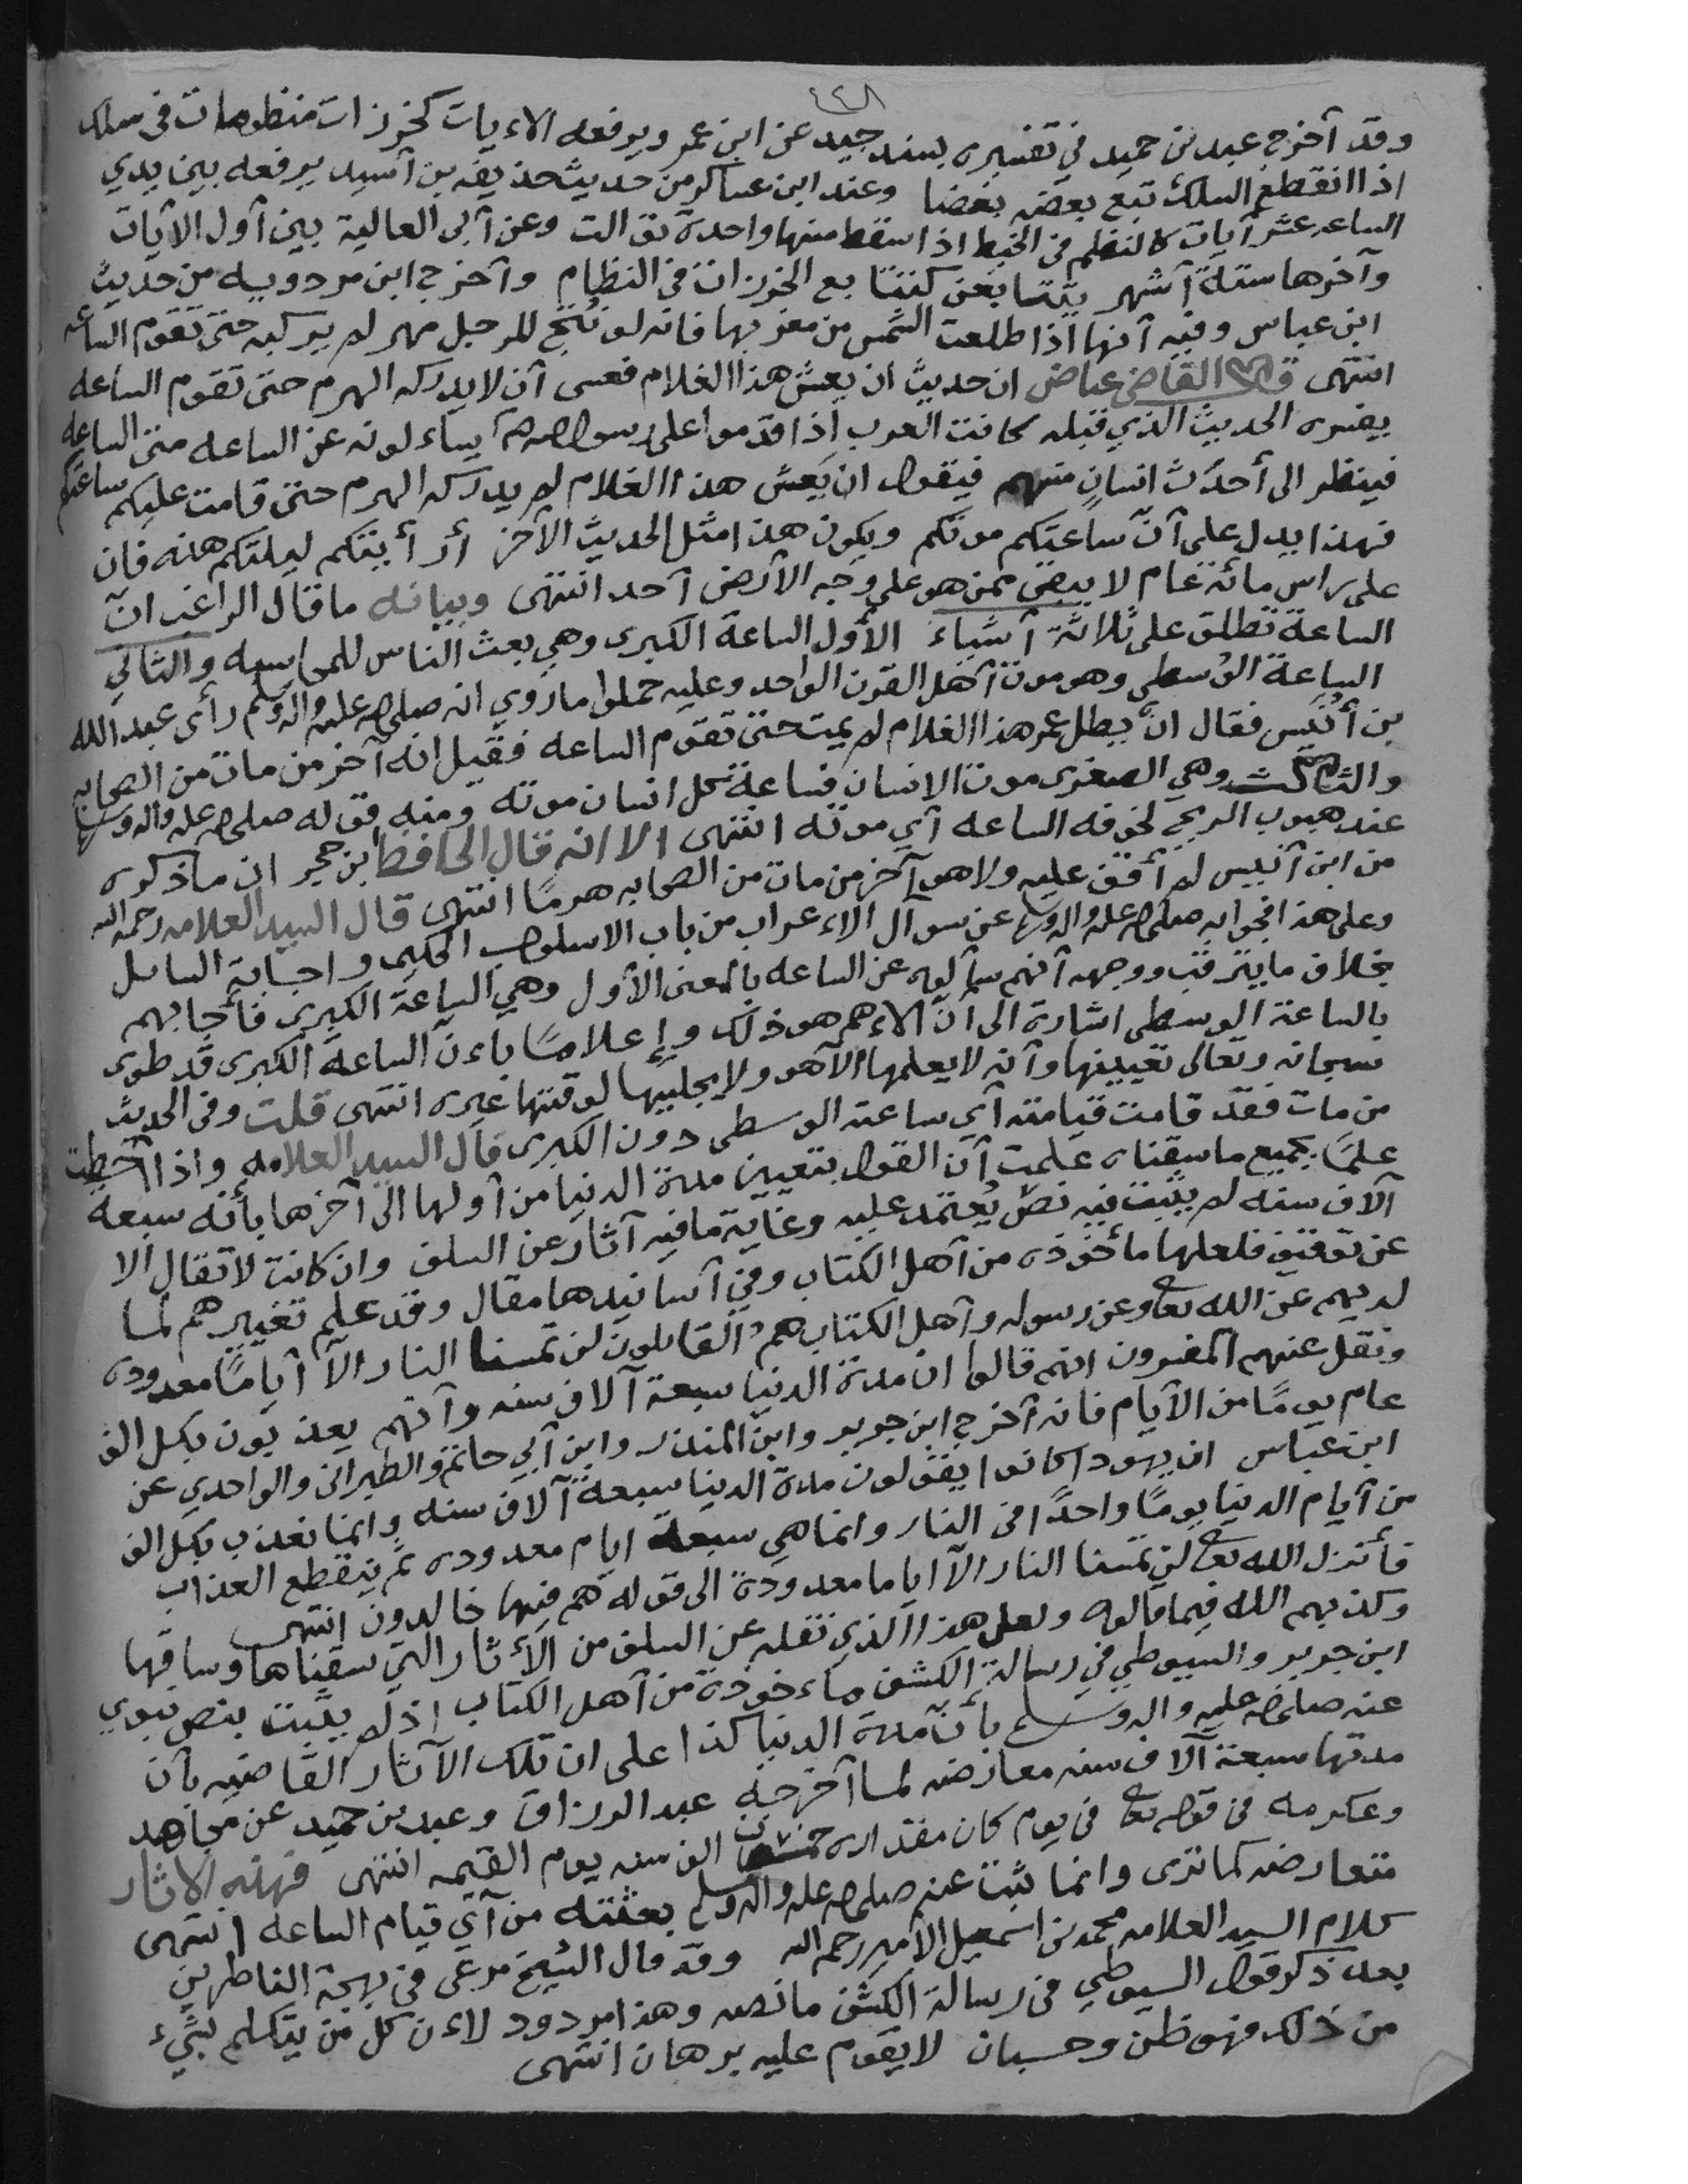 ٤٤٨
وقد آخرج عبد بن حميد في تفسيره بسند جيد عن ابن عمر ويرفعه الاءيات كخرزات منظومات في سلك
اذا انقطع السلك تبع بعضه بعضا وعند ابن عساكر من حديث حذيفه بن آسيد يرفعه بين يدي
الساعه عشر آيات كالنظم في الخيط اذا سقط منها واحدة توالت وعن آبي العالية بين آول الآيات
وآخرها ستة آشهر يتتابعن كتتابع الخرزات في النظام وآخرج ابن مردويه من حديث
ابن عباس وفيه آنها اذا طلعت الشمس من مغربها فانه لو نُتج للرجل مهر لم يركبه حتى تقوم الساعه
انتهى قال القاضي عياض ان حديث ان يعش هذا الغلام فعسى آن لا يدركه الهرم حتى تقوم الساعه
يفسره الحديث الذي قبله كانت العرب اذا قدموا على رسول الله يساءلونه عن الساعه متى الساعه
فينظر الى أحدث انسان منهم فيقول ان يعش هذا الغلام لم يدركه الهرم حتى قامت عليكم ساعتكم
فهذا يدل على آن ساعتكم موتكم ويكون هذا مثل الحديث الآخر أرأيتكم ليلتكم هذه فان
على راس مائة عام لا يبقى ممن هو على وجه الآرض آحد انتهى وبيانه ما قال الراغب ان
الساعة تطلق على ثلاثة آشياء الأول الساعة الكبرى وهي بعث الناس للمحاسبه والثاني
الساعة الوسطى وهو موت آهل القرن الواحد وعليه حملوا ما روي انه صلى الله عليه واله وسلم رأى عبد الله
بن أنيس فقال ان يطل عمر هذا الغلام لم يمت حتى تقوم الساعه فقيل انه آخر من مات من الصحابه
والثالث وهي الصغرى موت الانسان فساعة كل انسان موته ومنه قوله صلى الله عليه واله وسلم
عند هبوب الريح تخوفه الساعه آي موته انتهى الا انه قال الحافظ ابن حجر ان ما ذكره
من ابن آنيس لم أقف عليه ولا هو آخر من مات من الصحابه هرمًا انتهى قال السيد العلامه رحمه الله
وعلى هذا فجوابه صلى الله عليه واله وسلم عن سوآل الاءعراب من باب الاسلوب الحكيم واجابة السايل
بخلاف ما يترقب ووجهه آنهم سآلوه عن الساعه بالمعنى الآول وهي الساعة الكبرى فأجابهم
بالساعة الوسطى اشارة الى آن الاءهم هو ذلك وإعلامًا باءن الساعة الكبرى قد طوى
سبحانه وتعالى تعيينها وآنه لا يعلمها الآهو ولا يجليها لوقتها غيره انتهى قلت وفي الحديث
من مات فقد قامت قيامته آي ساعته الوسطى دون الكبرى قال السيد العلامه واذا آحطت
علمًا بجميع ما سقناه علمت آن القول بتعيين مدة الدنيا من آولها الى آخرها بأنه سبعة
آلاف سنه لم يثبت فيه نص يُعتمد عليه وغاية ما فيه آثار عن السلف وان كانت لا تقال الا
عن توقيف فلعلها مأخوذه من آهل الكتاب وفي آسانيدها مقال وقد علم تغييرهم لما
لديهم عن الله تعالى وعن رسوله وآهل الكتاب هم القايلون لن تمسنا النار الآ آيامًا معدوده
ونقل عنهم المفسرون انهم قالوا ان مدة الدنيا سبعة آلاف سنه وآنهم يعذبون بكل الف
عام يومًا من الآيام فانه آخرج ابن جرير وابن المنذر وابن آبي حاتم والطبراني والواحدي عن
ابن عباس ان يهود كانوا يقولون مدة الدنيا سبعة آلاف سنه وانما نعذب بكل الف
من آيام الدنيا يومًا واحدًا في النار وانما هي سبعة ايام معدوده ثم ينقطع العذاب
فأنزل الله تعالى لن تمسنا النار الآ اياما معدودة الى قوله هم فيها خالدون انتهى
وكذبهم الله فيما قالوه ولعل هذا الذي نقله عن السلف من الأثار التي سقناها وساقها
ابن جرير والسيوطي في رسالة الكشف ماءخوذة من آهل الكتاب اذ لم يثبت بنص نبوي
عنه صلى الله عليه واله وسلم بأن مدة الدنيا كذا على ان تلك الآثار القاضيه بآن
مدتها سبعة آلاف سنه معارضه لما آخرجه عبد الرزاق وعبد بن حميد عن مجاهد
وعكرمه في قوله تعالى في يوم كان مقداره خمسين الف سنه يوم القيمه انتهى فهذه الاثار
متعارضه كما ترى وانما ثبت عنه صلى الله عليه واله وسلم بعثته من آي قيام الساعه انتهى
كلام السيد العلامه محمد بن اسمعيل الآمير رحمه الله وقد قال الشيخ مرعي في بهجة الناظرين
بعد ذكر قول السيوطي في رسالة الكشف ما نصه وهذا مردود لاءن كل من يتكلم بشيء
من ذلك فهو ظن وحسبان لا يقوم عليه برهان انتهى